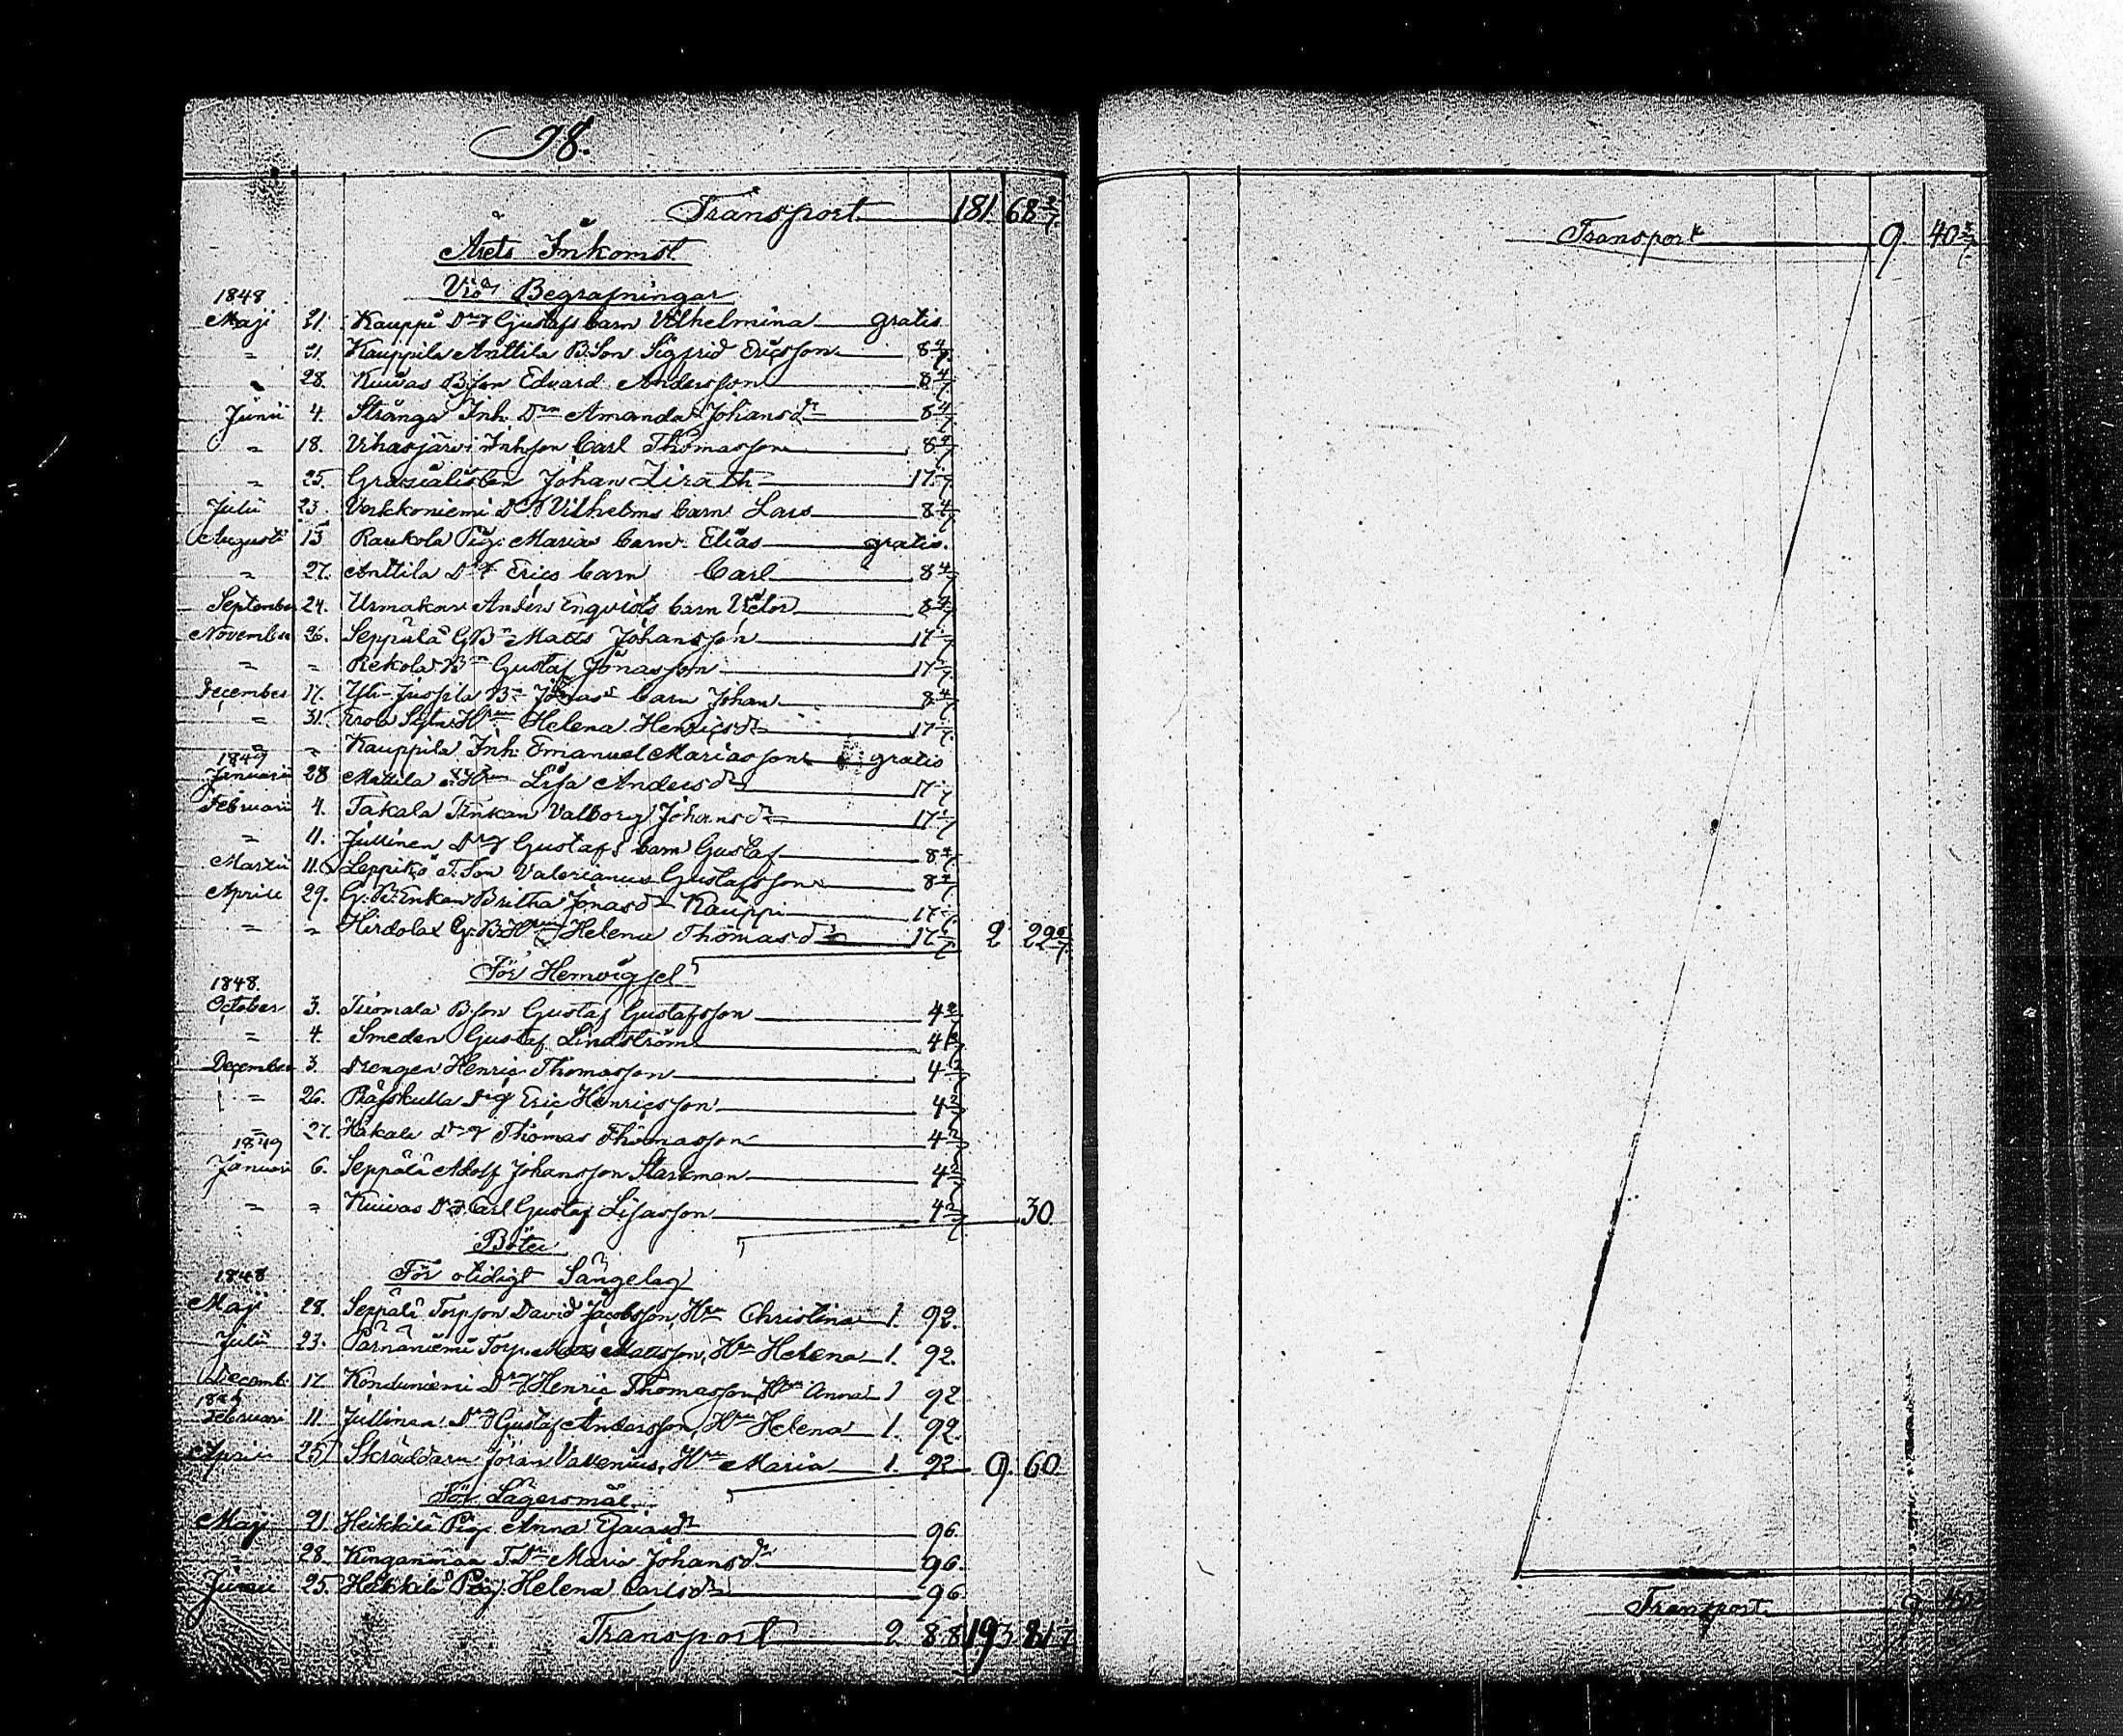 98.
Transport 181. 68 2/7.
Årets Inkomst
Vid Begrafningar
1848
Maji 21. Kauppi Drg Gustafs barn Vilhelmina gratis
" 21. Kauppila Anttila B.Son Sigfrid Ericsson 8 4/7
" 28. Kuivas B.son Edvard Andersson 8 4/7
Junii 4. Strånga Inh. Drn Amanda Johansdr 8 4/7
" 18. Inh.son Carl Thomasson 8 4/7
" 25. Gratialisten Johan Lirath 17 1/7
Julii 23. Verkkoniemi Drg Vilhelms barn Lars 8 4/7
Augusti 13 Raukola Pig. Marias barn Elias gratis.
" 27. Anttila Drg Erics barn Carl 8 4/7
September 24. Urmakar Anders Enqvists barn Victor 8 4/7
November 26. Seppälä G.Bn Matts Johansson 17 1/7
" " Rekola Bn Gustaf Jonasson 17 1/7
December 17. Yli-Jussila Bn Jonas barn Johan 8 4/7
" 31. Hrun Helena Henricsdr 17 1/7
" " Kauppila Inh. Emanuel Mariasson gratis
1849
Januarii 28 Mattila Hrun Lisa Andersdr 17 1/7
Februari 4. Takala Enkan Valborg Johansdr 17 1/7
" 11. Jullinen Drg Gustafs barn Gustaf 8 4/7
Martii 11. Leppikö T.Son Valerianus Gustafsson 8 4/7
Aprill 29. G.B.Enkan Britha Jonasdr Kauppi 17 1/7
" " Hirdola G.B.Hrun Helena Thomasdr 17 1/7 2 29 5/7
För Hemvigsel
1848.
October 3. Tuomala B.son Gustaf Gustafsson 4 2/7
" 4. Smeden Gustaf Lindström 4 2/7
December 3. Drengen Henric Thomasson 4 2/7
" 26. Räfskulla Drg Eric Henricsson 4 2/7
" 27. Hakala Drg Thomas Thomasson 4 2/7
1849
Januari 6. Seppälä Adolf Johansson Starkman 4 2/7
" " Kuivas Drg Carl Gustaf Lisasson 4 2/7 30.
Böter
För otidigt Sängelag
1848
Maji 28. Seppälä Torpson David Jacobsson, Hru Christina 1. 92.
Julii 23. Pärnäniemi Torp. Matts Mattsson, Hru Helena 1. 92.
Decemb. 17 Konduniemi Drg Henric Thomasson, Hru Anna 1 92
1849
Februari 11. Jullinen Drg Gustaf Andersson, Hru Helena 1. 92.
Aprill 25 Skräddaren Jöran Vallenius, Hru Maria 1. 92 9. 60.
För Lägersmål
Maji 21. Heikkilä Pig. Anna 96.
" 28. Kinganmaa T.Dr Maria Johansdr 96.
Junii 25. Heikkilä Pig. Helena Carlsdr 96
Transport 2 88 193 81 1/7
Transport 9. 40 2/7
Transport 9 40 2/7